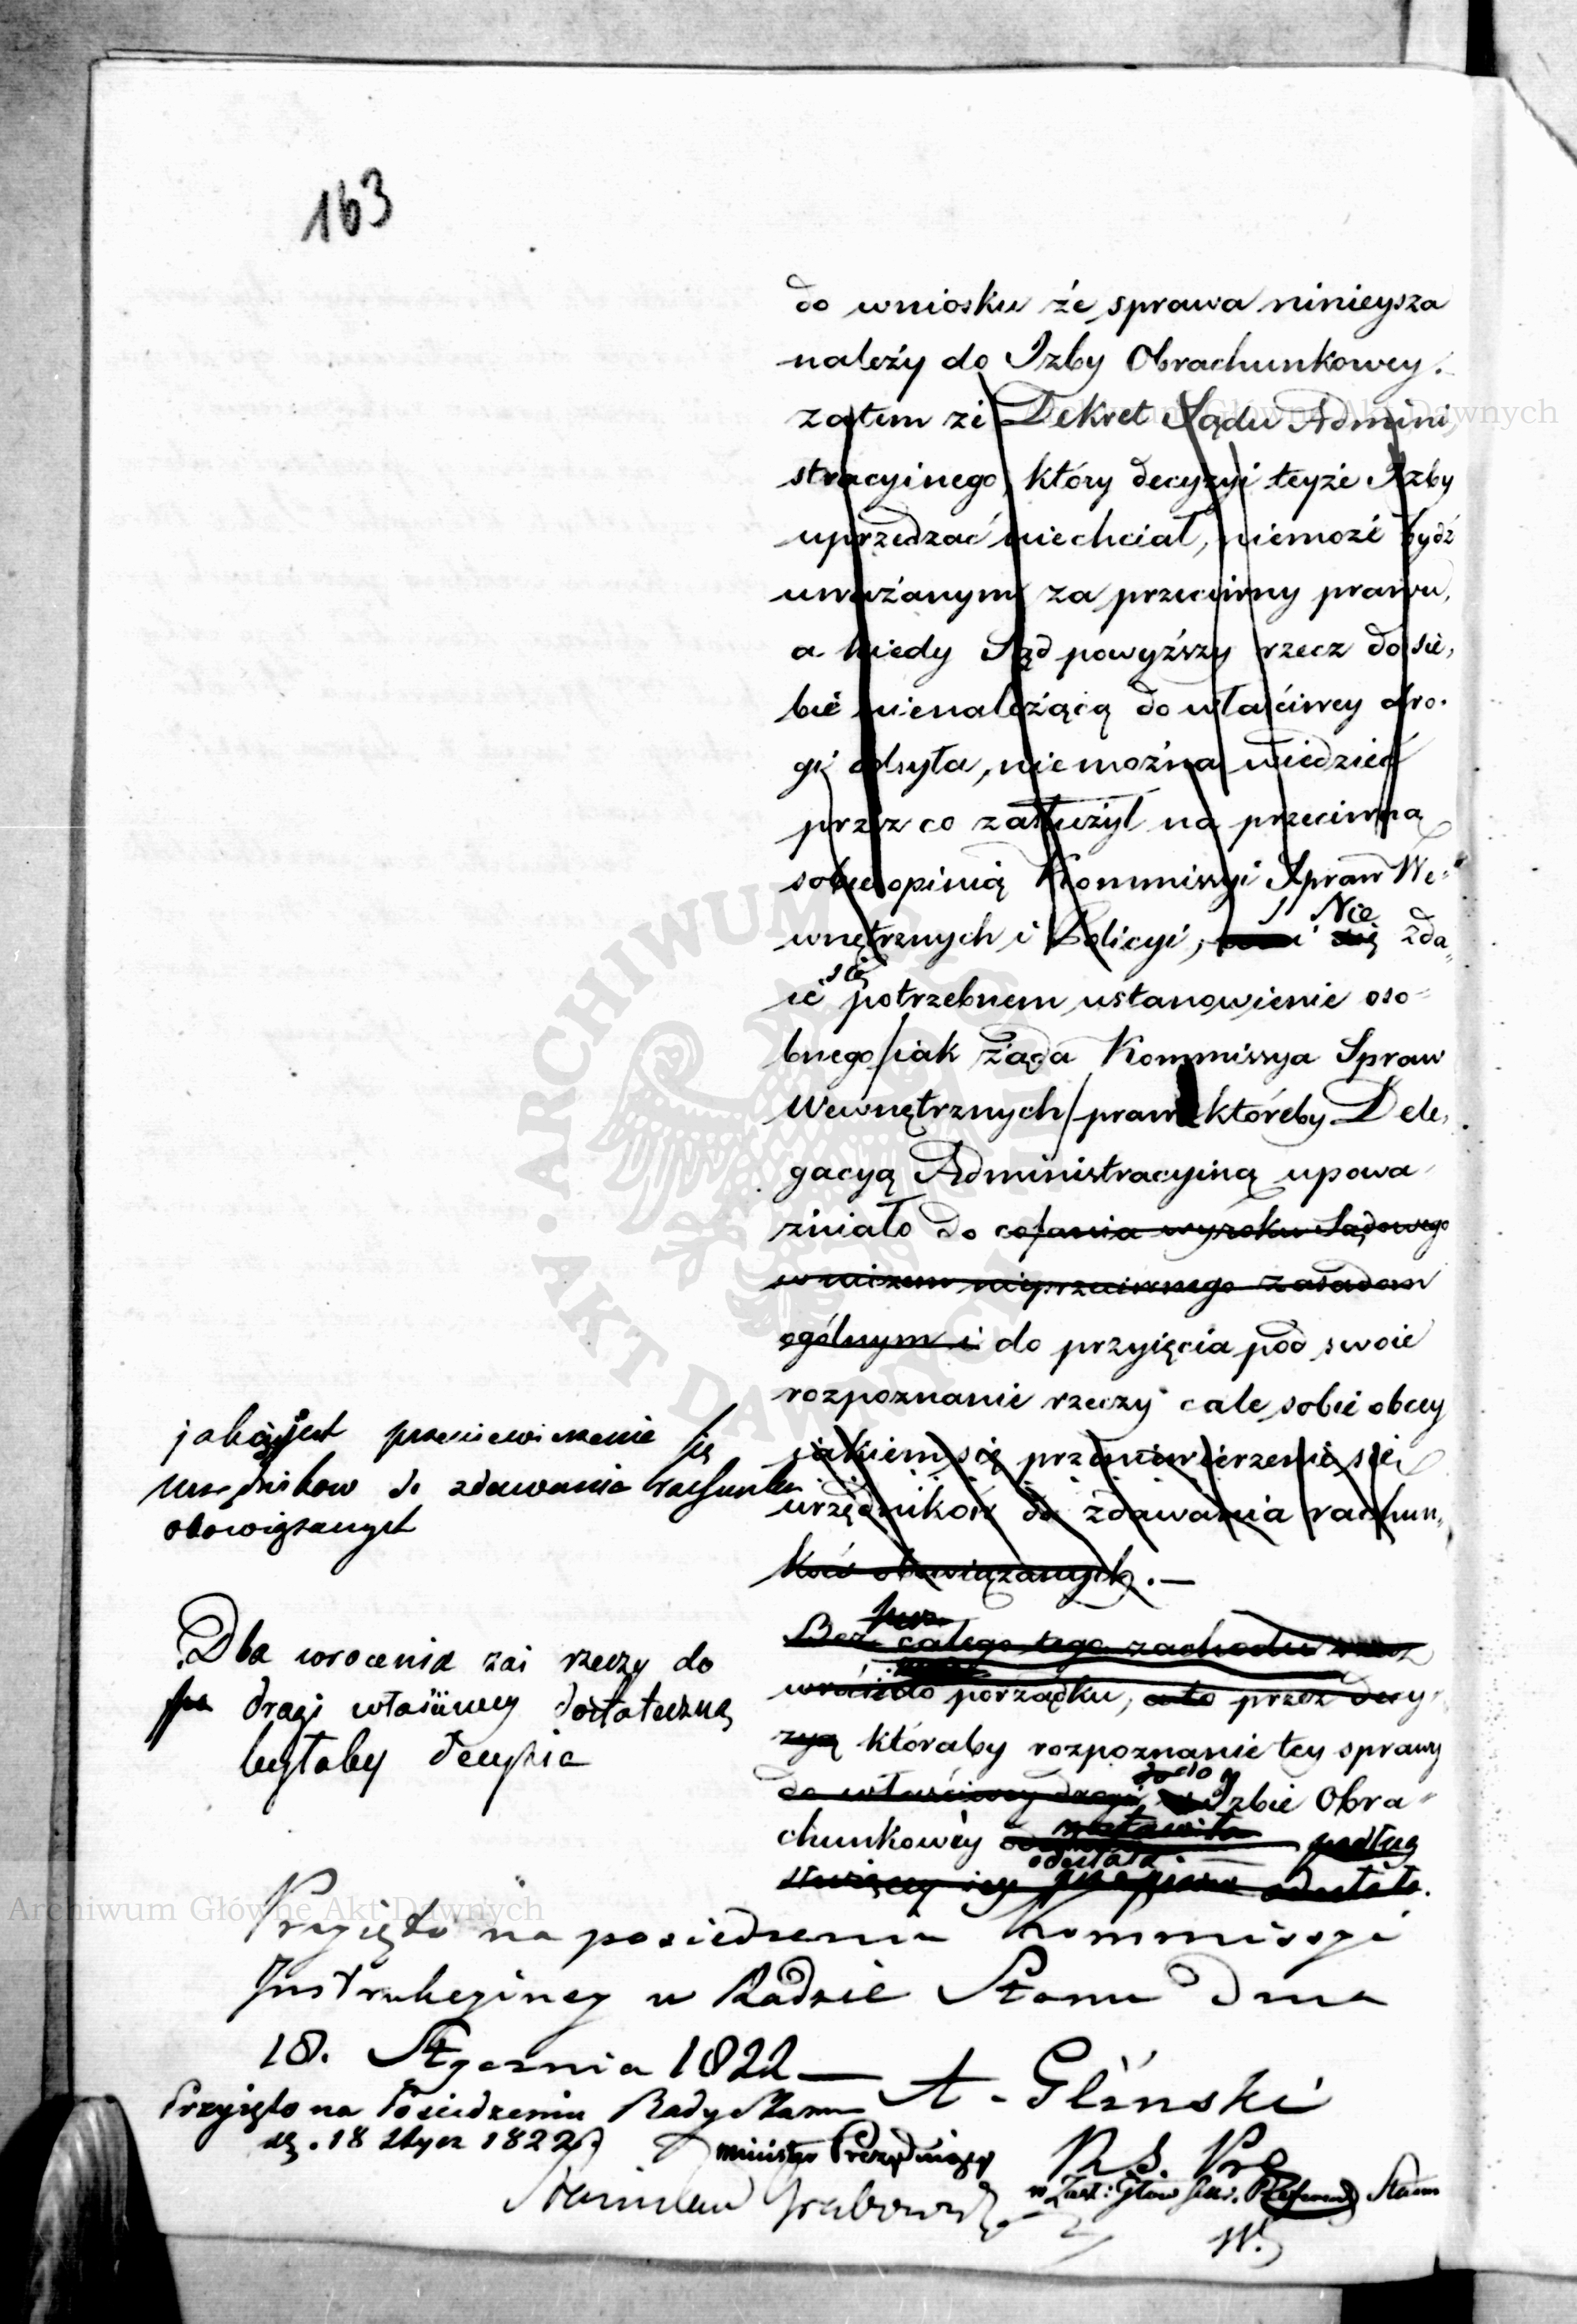 163
do wniosku że sprawa ninieysza
należy do Izby Obrachunkowey.
zatem że Dekret Sądu Admini
stracyinego, który decyzyi teyże Izby
uprzedzać niechciał, niemoże bydź
uważanym za przeciwny prawu,
a kiedy Sąd powyższy rzecz do sie,
bie nienależącą do właściwey dro-
gi odsyła, nie można wiedzieć
przez co zasłużył na przeciwną
sobie opinią Kommissyi Spraw We-
wnętrznych i Policyi, i Nie zda,
ie się potrzebnem ustanowienie oso-
bnego/iak żąda Kommissya Spraw
Wewnętrznych/praw któreby Dele,
gacyą Administracyiną upowa-
żniało do cofania wyroku Sądowego
w niczem nieprzeciwnego zasadom
ogólnym i do przyięcia pod swoie
rozpoznanie rzeczy cale sobie obcey
jakiem się przeniewierzenie się
urzędników do zdawania rachun,
ków obowiązanych.—
jakiem jest przeniewierzenie się
urzędnikow do zdawania rachunku
obowiązanych
Bez całego tego zachodu
wróci do porządku, a to przez decy-
zyą któraby rozpoznanie tey sprawy
do właściwey drogi Izbie Obra-
chunkowey zostawiła podług
służącey iey odesłała.
odesłała
Dla wrocenia zaś rzeczy do
drogi właściwey dostateczną
byłaby decyzia
Przyięto na posiedzeniu Kommissyi
Instrukcyiney w Radzie Stanu Dnia
18. Stycznia 1822 — A. Gliński
Przyięto na Posiedzeniu Rady Stanu
d. 18 Stycz 1822.
Minister Prezyduiący
Stanisław Grabowski
R. S. Pro
w Zast: Głow Sek. Referend Stanu